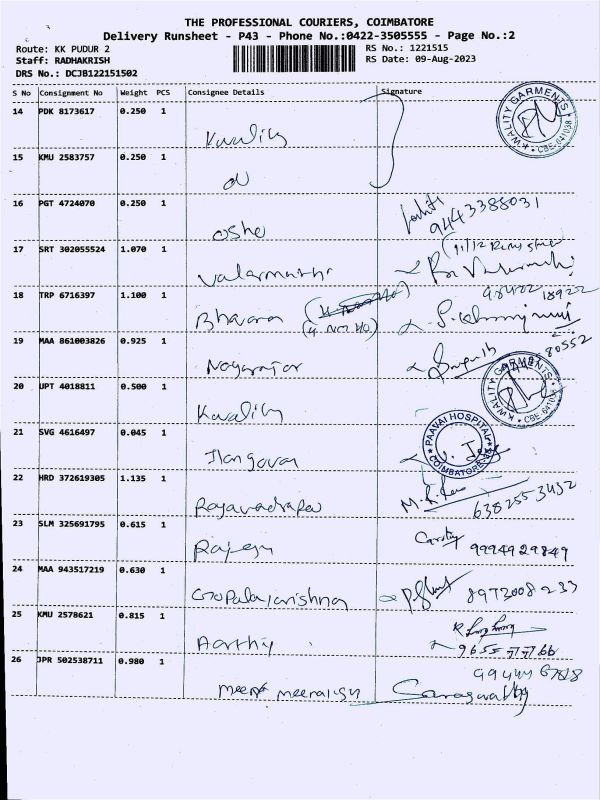 THE PROFESSIONAL COURIERS, COIMBATORE
Delivery Runsheet - P43 - Phone No.:0422-3505555 - Page No.:2
Route: KK PUDUR 2
RS No.: 1221515
Staff: RADHAKRISH
RS Date: 09-Aug-2023
DRS No.: DCJB122151502
S No Consignment No Weight PCS Consignee Details Signature
14 PDK 8173617 0.250 1
Kwality
KWALITY GARMENTS CBE-641038
15 KMU 2583757 0.250 1
16 PGT 4724070 0.250 1
osho
9443388031
17 SRT 302055524 1.070 1
Valarmathi
18 TRP 6716397 1.100 1
Bhavara
98422 18922
19 MAA 861003826 0.925 1
Nagarajar
80552
20 UPT 4018811 0.500 1
Kwality
KWALITY GARMENTS CBE-641038
21 SVG 4616497 0.045 1
Ilangovan
PAAVAI HOSPITAL COIMBATORE
22 HRD 372619305 1.135 1
6382553432
23 SLM 325691795 0.615 1
Rajesh
9994929849
24 MAA 943517219 0.630 1
Gopalakrishnan
8973008233
25 KMU 2578621 0.815 1
Aarthy
26 JPR 502538711 0.980 1
Saraswathy